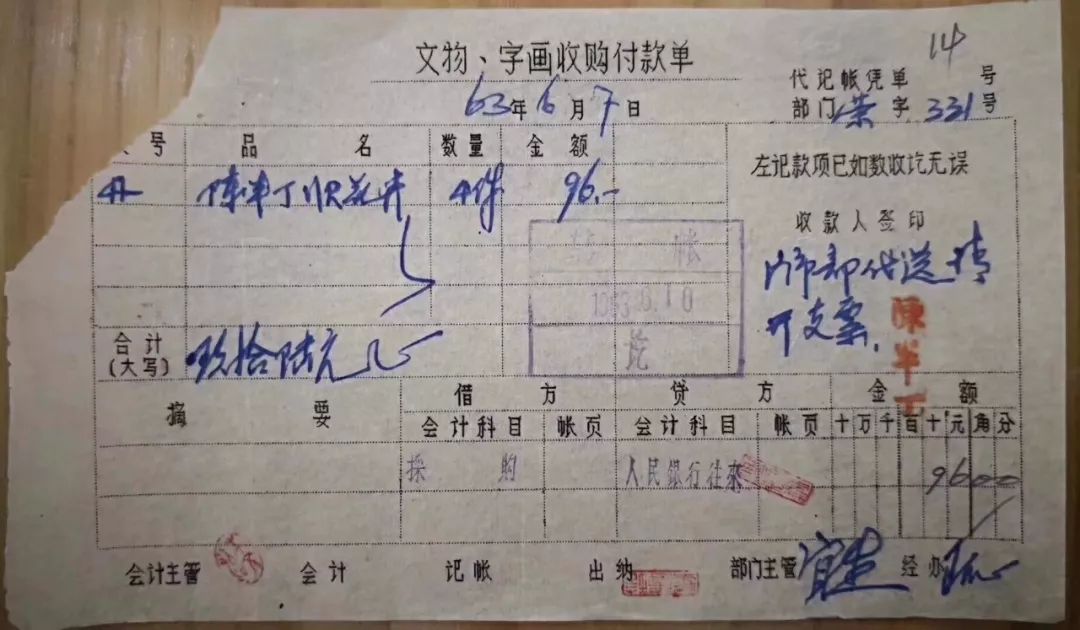 文物、字画收购付款单
14
代记帐凭单 号
63年6月7日
部门 荣 字 331 号
号 品 名 数量 金额
左记款项已如数收讫无误
陈半丁 花卉 4件 96.-
收款人签印
帐
代送请
1963.6.10
开支票.
讫
陳半丁
合计
(大写) 玖拾陆元
摘 要 借 方 贷 方 金 额
会计科目 帐页 会计科目 帐页 十万千百十元角分
採 购 人民银行往来 9600
会计主管 会计 记帐 出纳 部门主管 经办